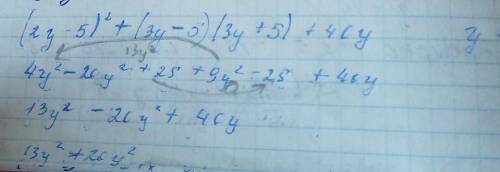 (2y - 5)² + (3y - 5)(3y + 5) + 40y y
13y²
4y² - 20y² + 25 + 9y² - 25 + 40y
13y² - 20y² + 40y
13y² + 20y²